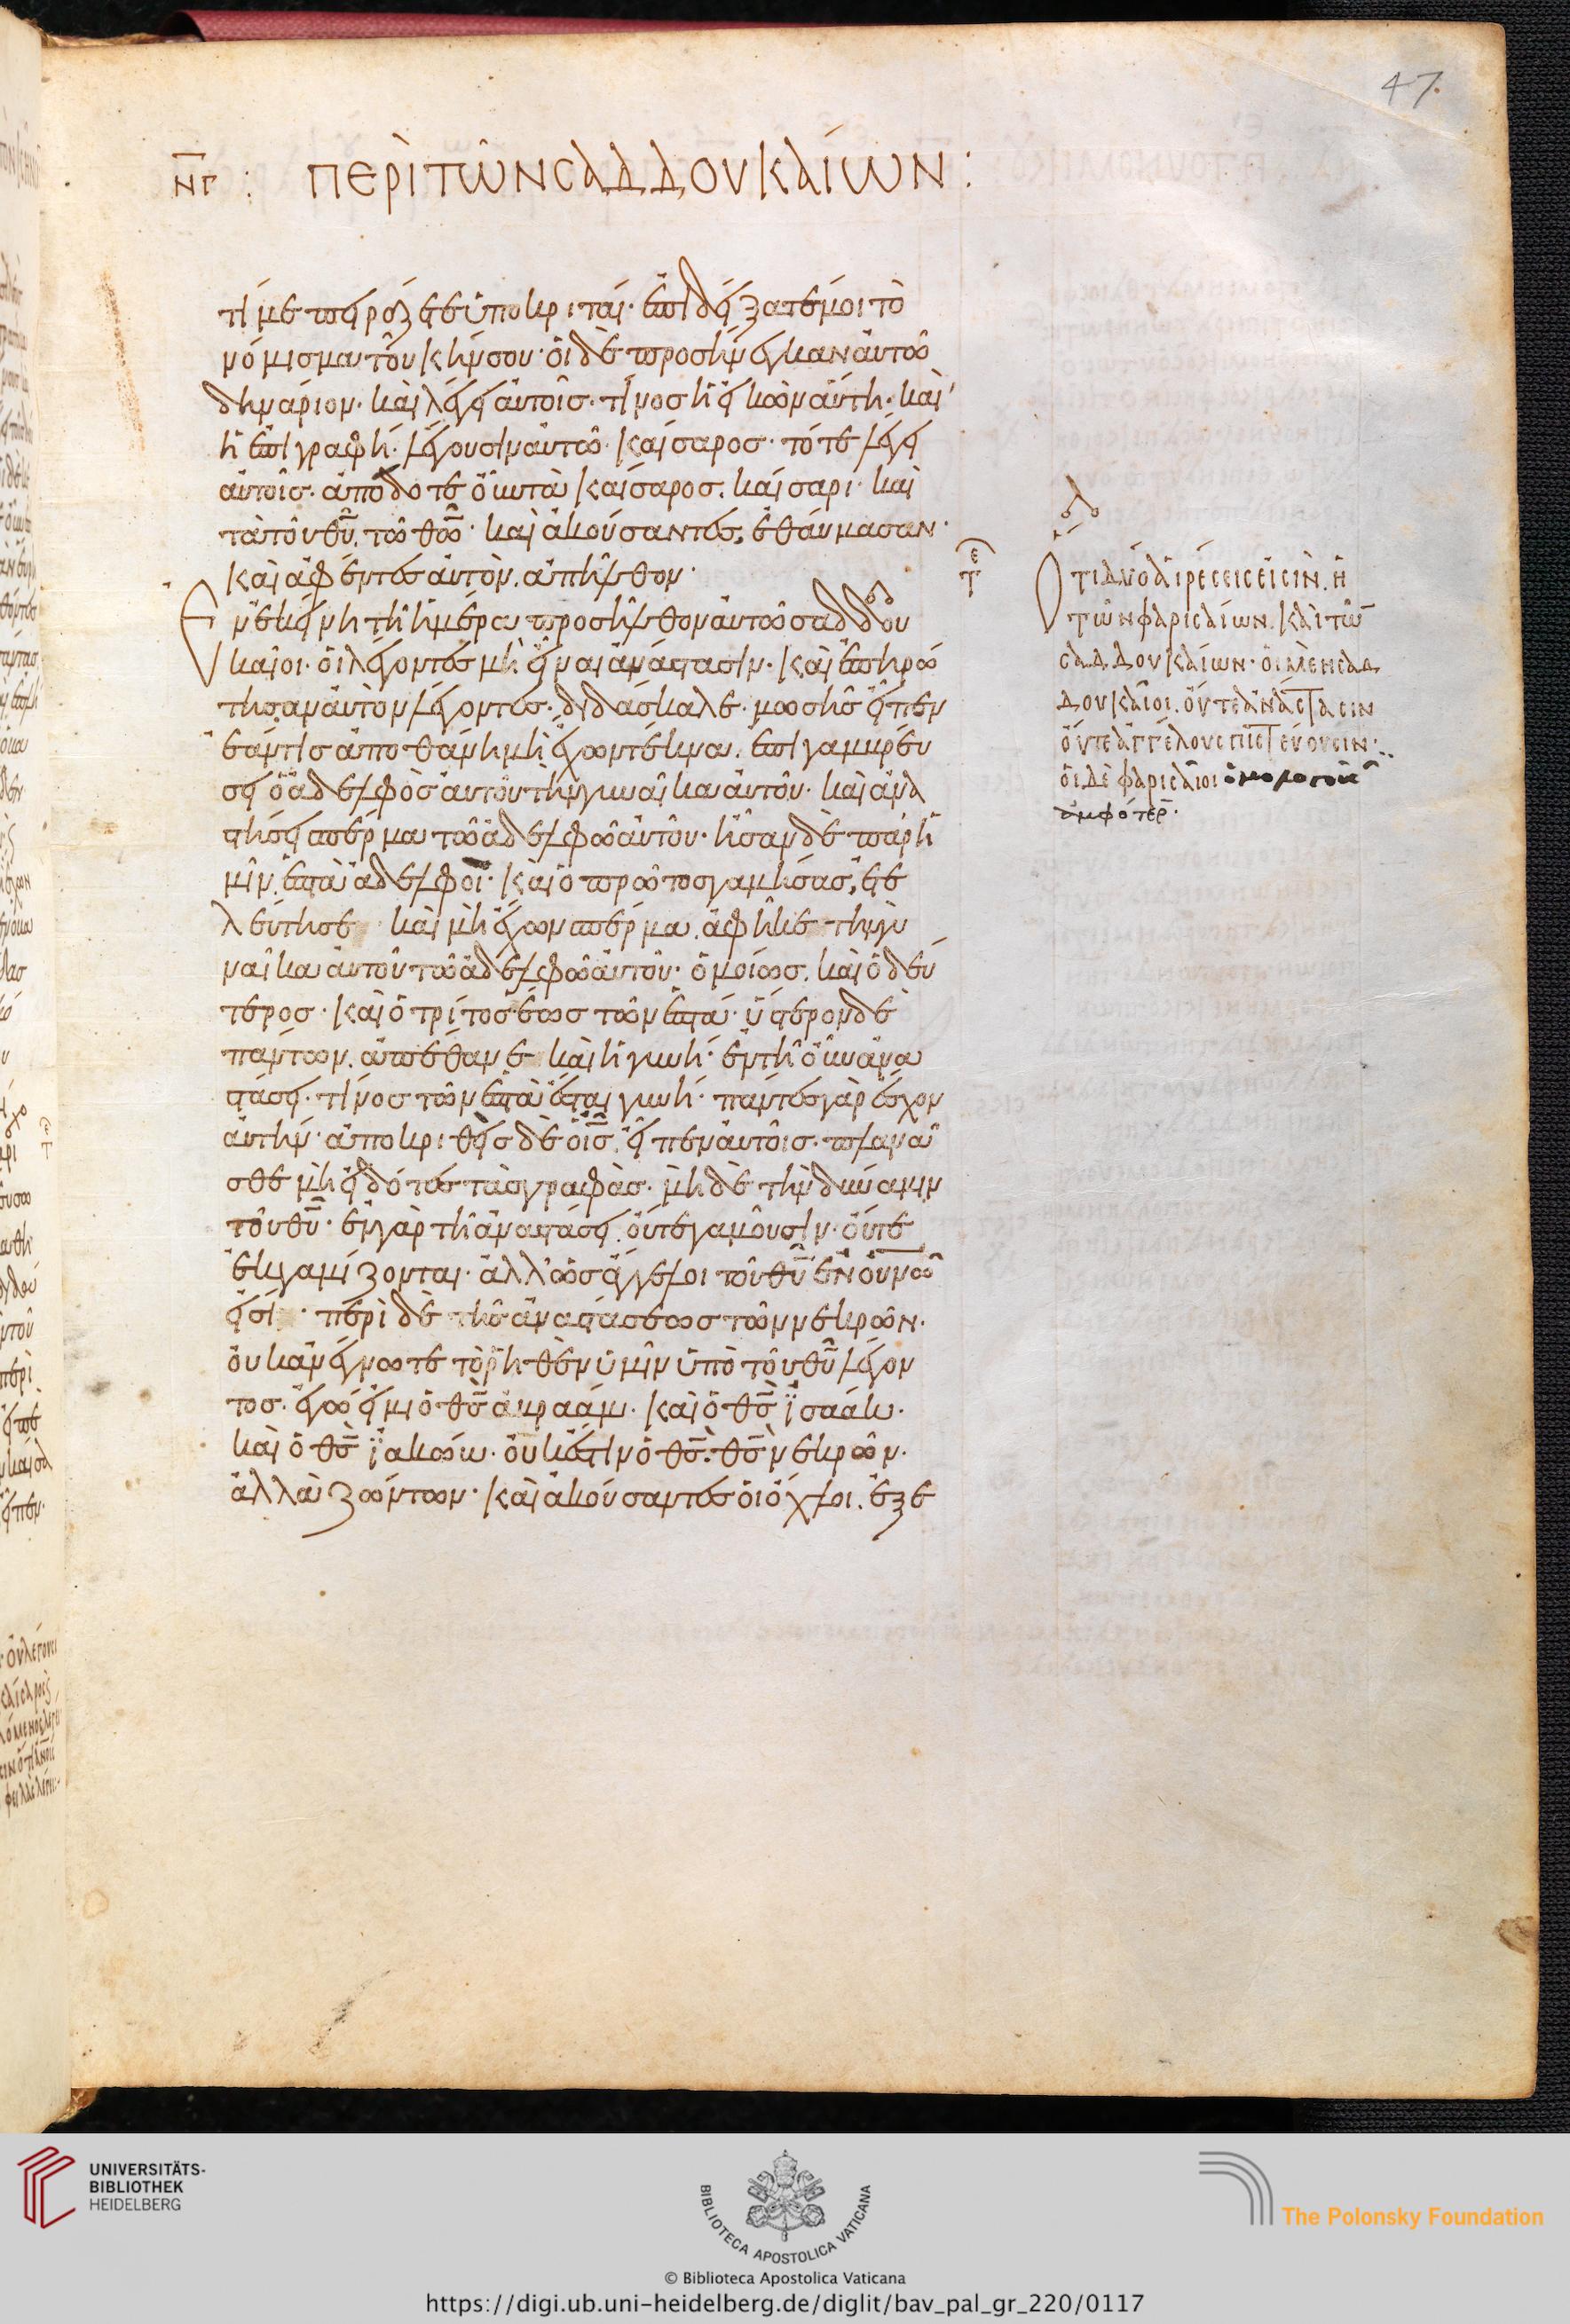 47.
ΝΓ : ΠΕΡὶ ΤῶΝ CΑΔΔΟΥΚΑίωΝ :
τί με πειράζετε ὑποκριταί· ἐπιδείξατέ μοι τὸ
νόμισμα τοῦ κήνσου· οἱ δὲ προσήνεγκαν αὐτῶ
δηνάριον· καὶ λέγει αὐτοῖς· τίνος ἡ εἰκὼν αὕτη· καὶ
ἡ ἐπιγραφή· λέγουσιν αὐτῶ· καίσαρος· τότε λέγει
αὐτοῖς· ἀπόδοτε οὖν τὰ καίσαρος, καίσαρι· καὶ
τὰ τοῦ θῦ, τῶ θῶ· καὶ ἀκούσαντες, ἐθαύμασαν·
καὶ ἀφέντες αὐτὸν, ἀπῆλθον·
Ἐν ἐκείνη τῆ ἡμέρα προσῆλθον αὐτῶ σαδδου
καῖοι· οἱ λέγοντες μὴ εἶναι ἀνάστασιν· καὶ ἐπηρώ
τησαν αὐτὸν λέγοντες· διδάσκαλε· μωσῆς εἶπεν
ἐάν τις ἀποθάνη μὴ ἔχων τέκνα, ἐπιγαμβρεύ
σει ὁ ἀδελφὸς αὐτοῦ τὴν γυναῖκα αὐτοῦ· καὶ ἀνα
στήσει σπέρμα τῶ ἀδελφῶ αὐτοῦ· ἦσαν δὲ παρ' ἡ
μῖν, ἑπτὰ ἀδελφοί· καὶ ὁ πρῶτος γαμήσας, ἐτε
λεύτησε καὶ μὴ ἔχων σπέρμα, ἀφῆκε τὴν γυ
ναῖκα αὐτοῦ τῶ ἀδελφῶ αὐτοῦ· ὁμοίως, καὶ ὁ δεύ
τερος· καὶ ὁ τρίτος ἕως τῶν ἑπτά· ὕστερον δὲ
πάντων, ἀπέθανε καὶ ἡ γυνή· ἐν τῆ οὖν ἀνα
στάσει· τίνος τῶν ἑπτὰ ἔσται γυνή· πάντες γὰρ ἔσχον
αὐτήν· ἀποκριθεὶς δὲ ὁ ις, εἶπεν αὐτοῖς· πλανᾶ
σθε μὴ εἰδότες τὰς γραφάς· μὴ δὲ τὴν δύναμιν
τοῦ θῦ· ἐν γὰρ τῆ ἀναστάσει, οὔτε γαμοῦσιν· οὔτε
ἐκγαμίζονται· ἀλλ' ὡς ἄγγελοι τοῦ θῦ ἐν οὐνῶ
εἰσί· περὶ δὲ τῆς ἀναστάσεως τῶν νεκρῶν·
οὐκ ἀνέγνωτε τὸ ῥηθὲν ὑμῖν ὑπὸ τοῦ θῦ λέγον
τος· ἐγώ εἰμι ὁ θς ἀβραάμ· καὶ ὁ θς ἰσαάκ·
καὶ ὁ θς ἰακώβ· οὐκ ἔστιν ὁ θς, θς νεκρῶν·
ἀλλὰ ζώντων· καὶ ἀκούσαντες οἱ ὄχλοι, ἐξε
Ὅτι δύο αἱρέσεις εἰσὶν, ἡ
τῶν φαρισαίων, καὶ τῶν
σαδδουκαίων· οἱ μὲν σαδ
δουκαῖοι, οὔτε ἀνάστασιν
οὔτε ἀγγέλους πιστεύουσιν·
οἱ δὲ φαρισαῖοι
ἀμφότερ·
UNIVERSITÄTS-
BIBLIOTHEK
HEIDELBERG
BIBLIOTECA APOSTOLICA VATICANA
The Polonsky Foundation
© Biblioteca Apostolica Vaticana
https://digi.ub.uni-heidelberg.de/diglit/bav_pal_gr_220/0117